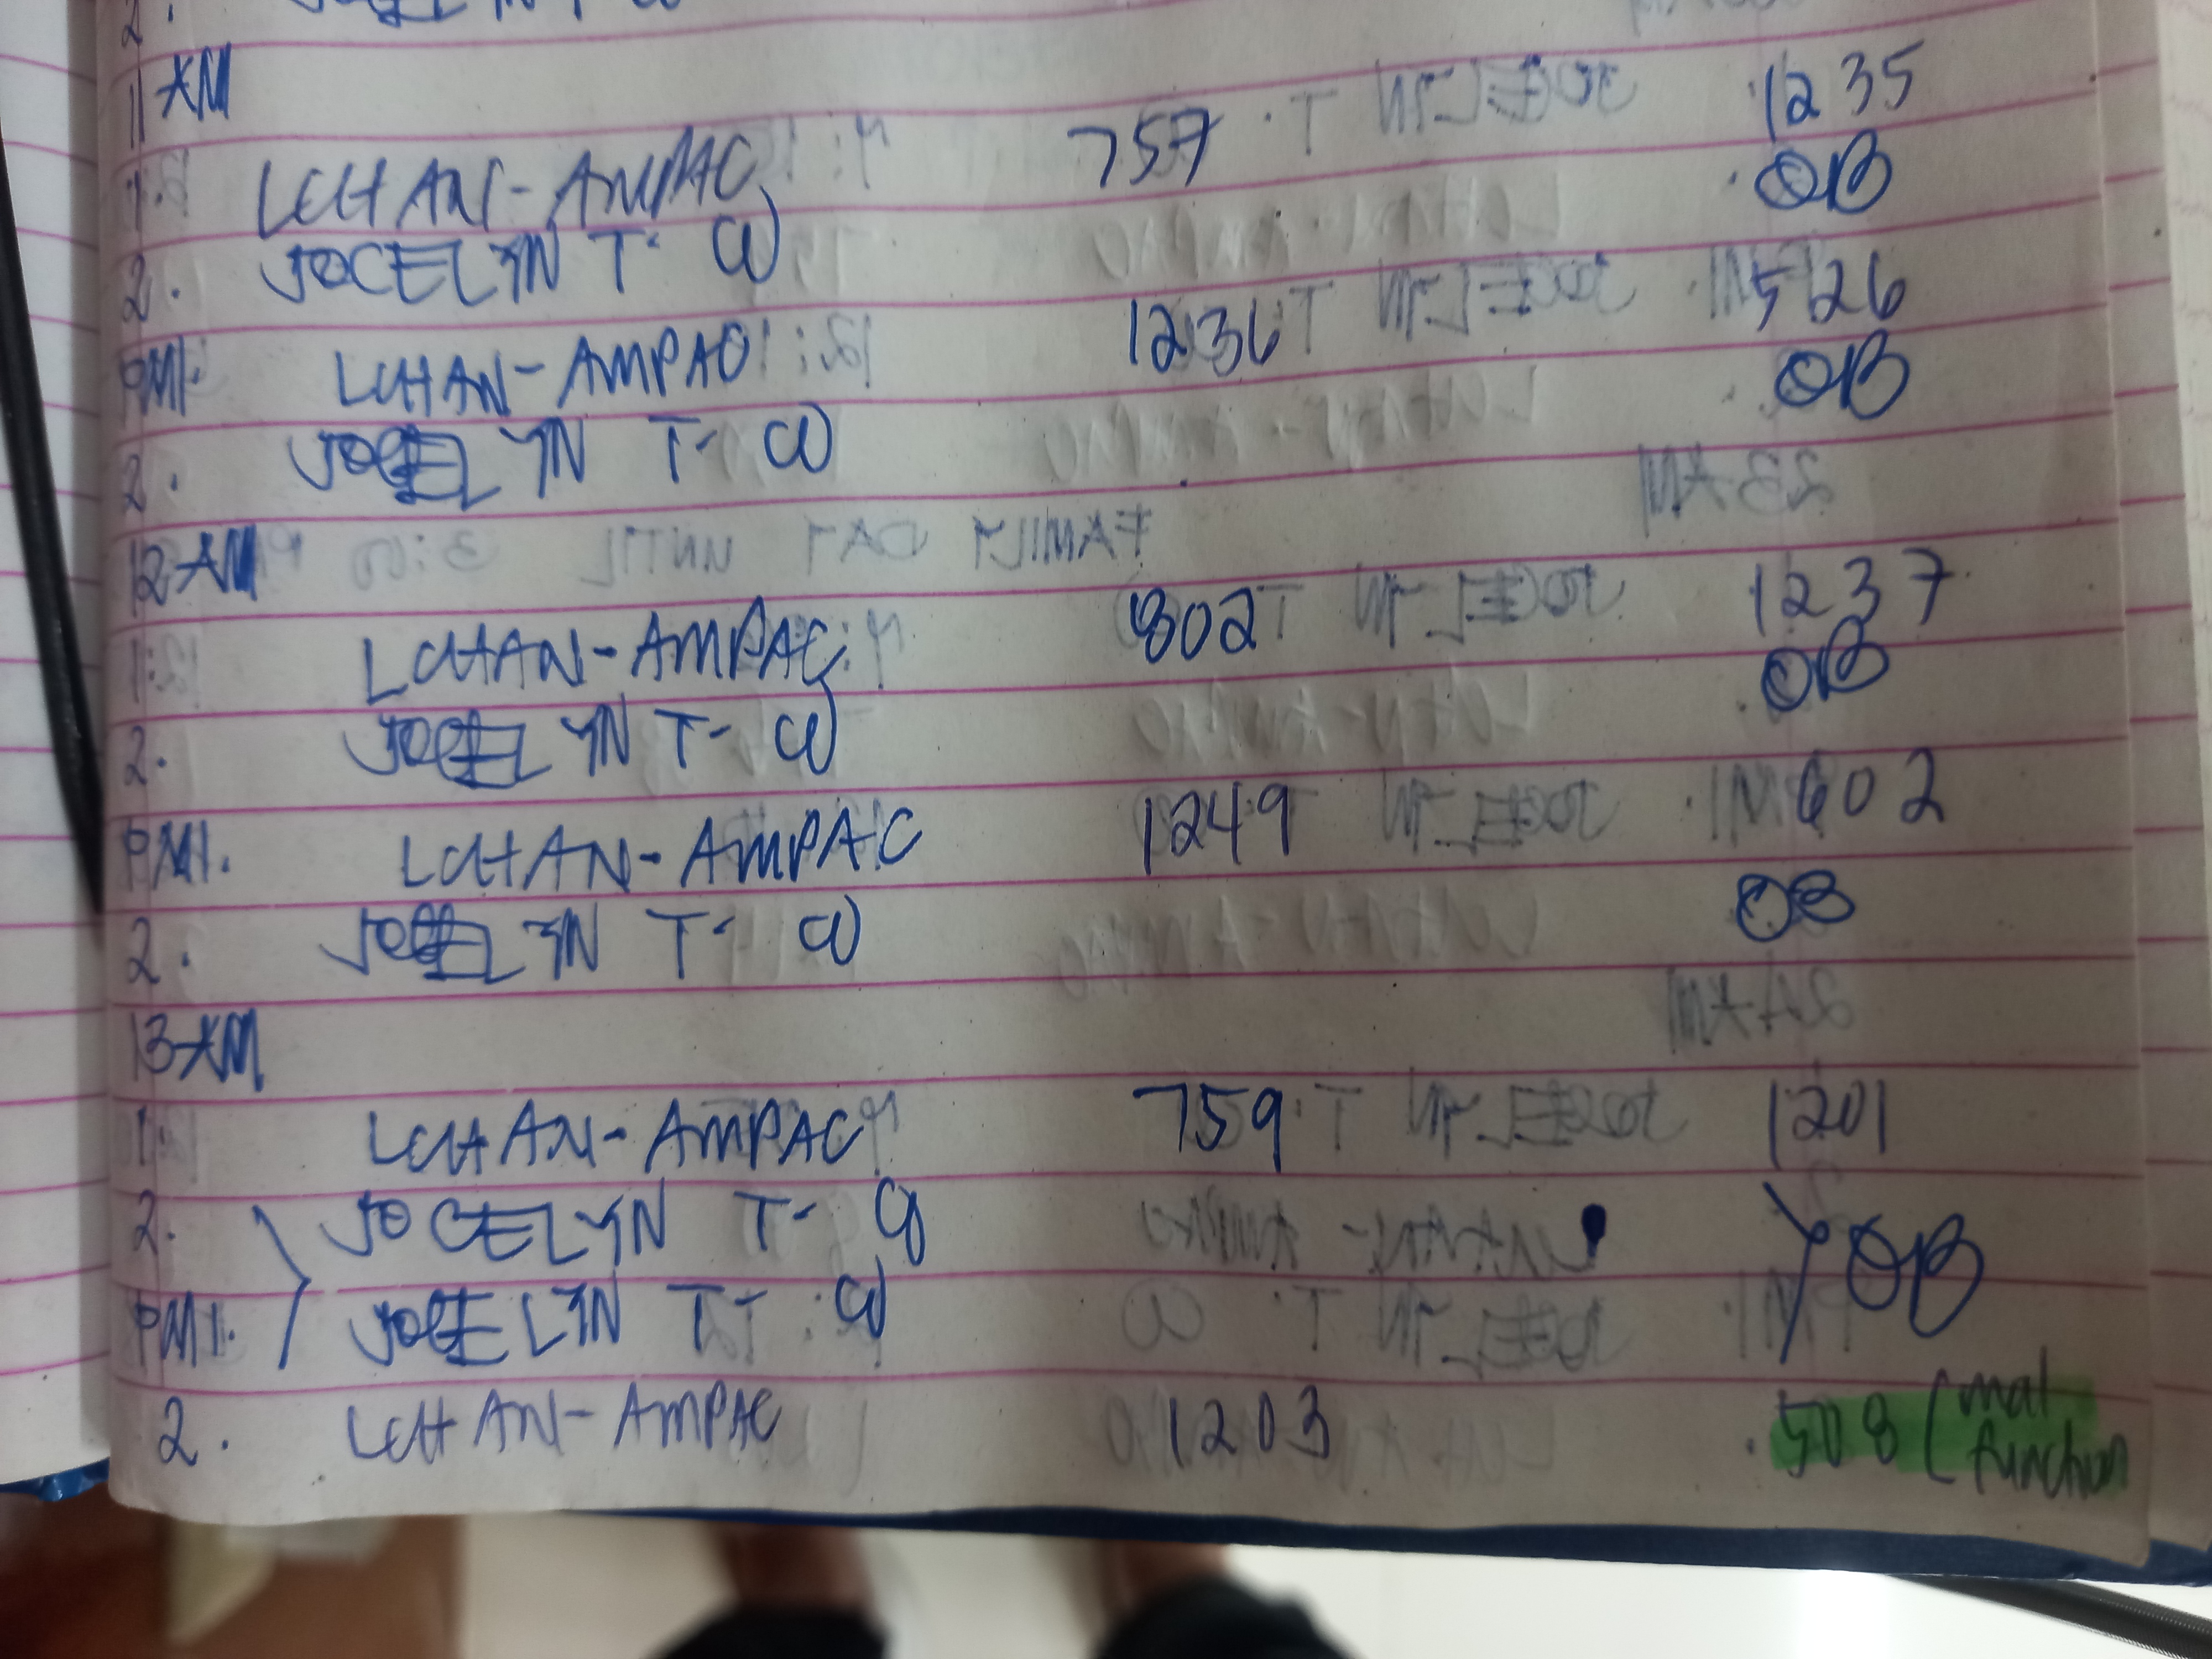 11 AM
1. LCHAN-AMPAC 757 1235
2. JOCELYN T. OB
PM1. LCHAN-AMPAC 1236 526
2. JOCELYN T- OB
12 AM
LCHAN-AMPAC 802 1237
2. JOCELYN T- OB
PM1. LCHAN-AMPAC 1249 602
2. JOCELYN T- OB
13 AM
1. LCHAN-AMPAC 759 1201
2. JOCELYN T-
PM1. JOCELYN T- OB
2. LCHAN-AMPAC 1203 508 (mal
function